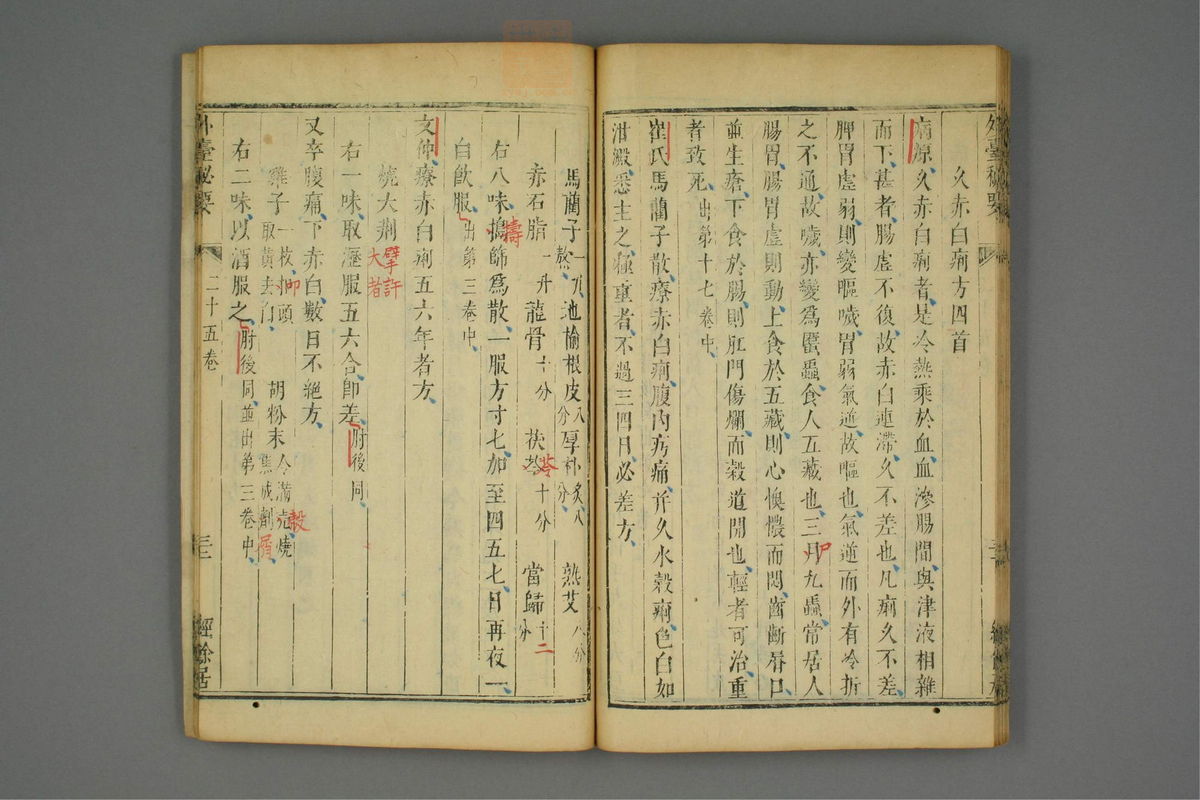 外臺秘要
久赤白痢方四首
病源久赤白痢者是冷熱乘於血血滲腸間與津液相雜
而下甚者腸虛不復故赤白連滯久不差也凡痢久不差
脾胃虛弱則變嘔噦胃弱氣逆故嘔也氣逆而外有冷折
之不通故噦亦變爲䘌蟲食人五藏也三尸九蟲常居人
腸胃腸胃虛則動上食於五藏則心懊憹而悶齒齗脣口
並生瘡下食於腸則肛門傷爛而穀道開也輕者可治重
者致死出第十七卷中
崔氏馬藺子散療赤白痢腹内㽲痛并久水穀痢色白如
泔澱悉主之極重者不過三四日必差方
馬藺子一升熬 地榆根皮八分 厚朴炙八分 熟艾八分
赤石脂一升 龍骨十分 茯苓十分 當歸十二分
右八味搗篩爲散一服方寸匕加至四五匕日再夜一
白飲服出第三卷中
文仲療赤白痢五六年者方
燒大荆擘許大者
右一味取瀝服五六合即差肘後同
又卒腹痛下赤白數日不絕方
雞子一枚扣頭取黄去門 胡粉末令滿殻燒焦成劑屑
右二味以酒服之肘後同並出第三卷中
外臺秘要
二十五卷
三十二
經餘居